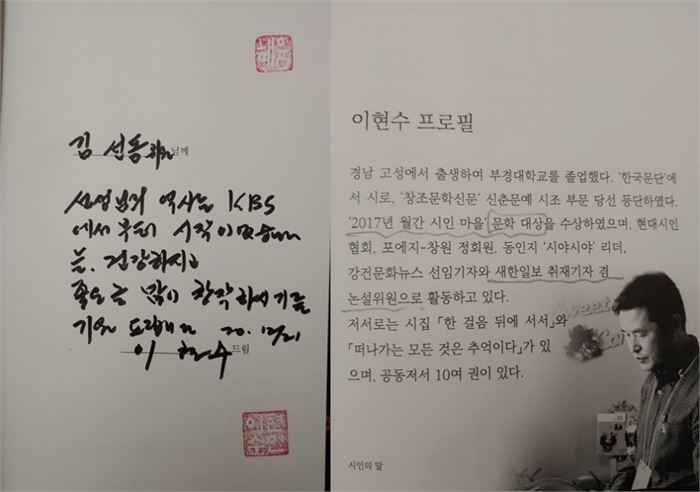 김 선동 님께
선생님의 역사는 KBS
에서 부터 시작이
건강하시고
좋은 글 많이 창작하시기를
20. 12/21
이 현 수 드림
이현수 프로필
경남 고성에서 출생하여 부경대학교를 졸업했다. '한국문단'에
서 시로, '창조문학신문' 신춘문예 시조 부문 당선 등단하였다.
'2017년 월간 시인 마을' 문학 대상을 수상하였으며, 현대시인
협회, 포에지-창원 정회원, 동인지 '시야시야' 리더,
강건문화뉴스 선임기자와 새한일보 취재기자 겸
논설위원으로 활동하고 있다.
저서로는 시집 「한 걸음 뒤에 서서」와
「떠나가는 모든 것은 추억이다」가 있
으며, 공동저서 10여 권이 있다.
시인의 말